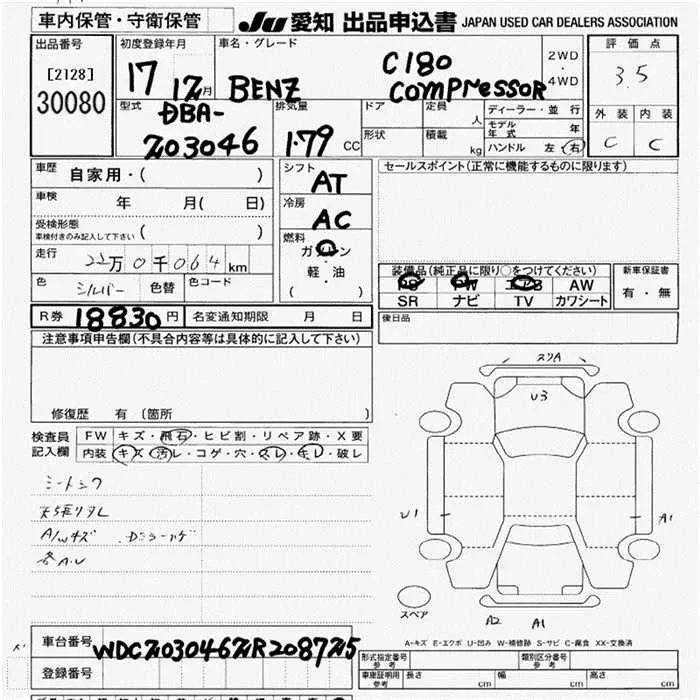 車内保管・守衛保管 JU 愛知 出品申込書 JAPAN USED CAR DEALERS ASSOCIATION
出品番号 初度登録年月 車名・グレード 2WD・4WD 評価点
[2128] 17 12月 BENZ C180 COMPRESSOR 3.5
30080
型式 排気量 ドア 定員 人 ディーラー・並行 外装 内装
DBA-203046 1.79 CC 形状 積載 kg モデル年式 年 C C
ハンドル 左 右
車歴 自家用・( ) シフト AT セールスポイント(正常に機能するものに限ります)
車検 年 月( 日) 冷房 AC
受検形態 ( )
車検付きのみ記入して下さい
燃料 ガソリン
軽・油
( )
走行 22万0千064km 装備品(純正品に限り○をつけてください) 新車保証書
色 シルバー 色替 色コード PS PW エアB AW 有・無
SR ナビ TV カワシート
R券 18830円 名変通知期限 月 日 後日品
注意事項申告欄(不具合内容等は具体的に記入して下さい)
スリA
U3
修復歴 有 〔箇所 〕
検査員記入欄 FW キズ・飛石・ヒビ割・リペア跡・X要
内装 キズ・汚レ・コゲ・穴・スレ・キレ・破レ
シートシワ
天張りタレ
A/Wキズ
各A・U
U1 A1
スペア
A2 A1
A-キズ E-エクボ U-凹み W-補修跡 S-サビ C-腐食 XX-交換済
車台番号 WDC2030462R208725
登録番号
形式指定番号 参考 類別区分番号 参考
車庫証明用 参考 長さ cm 幅 cm 高さ cm